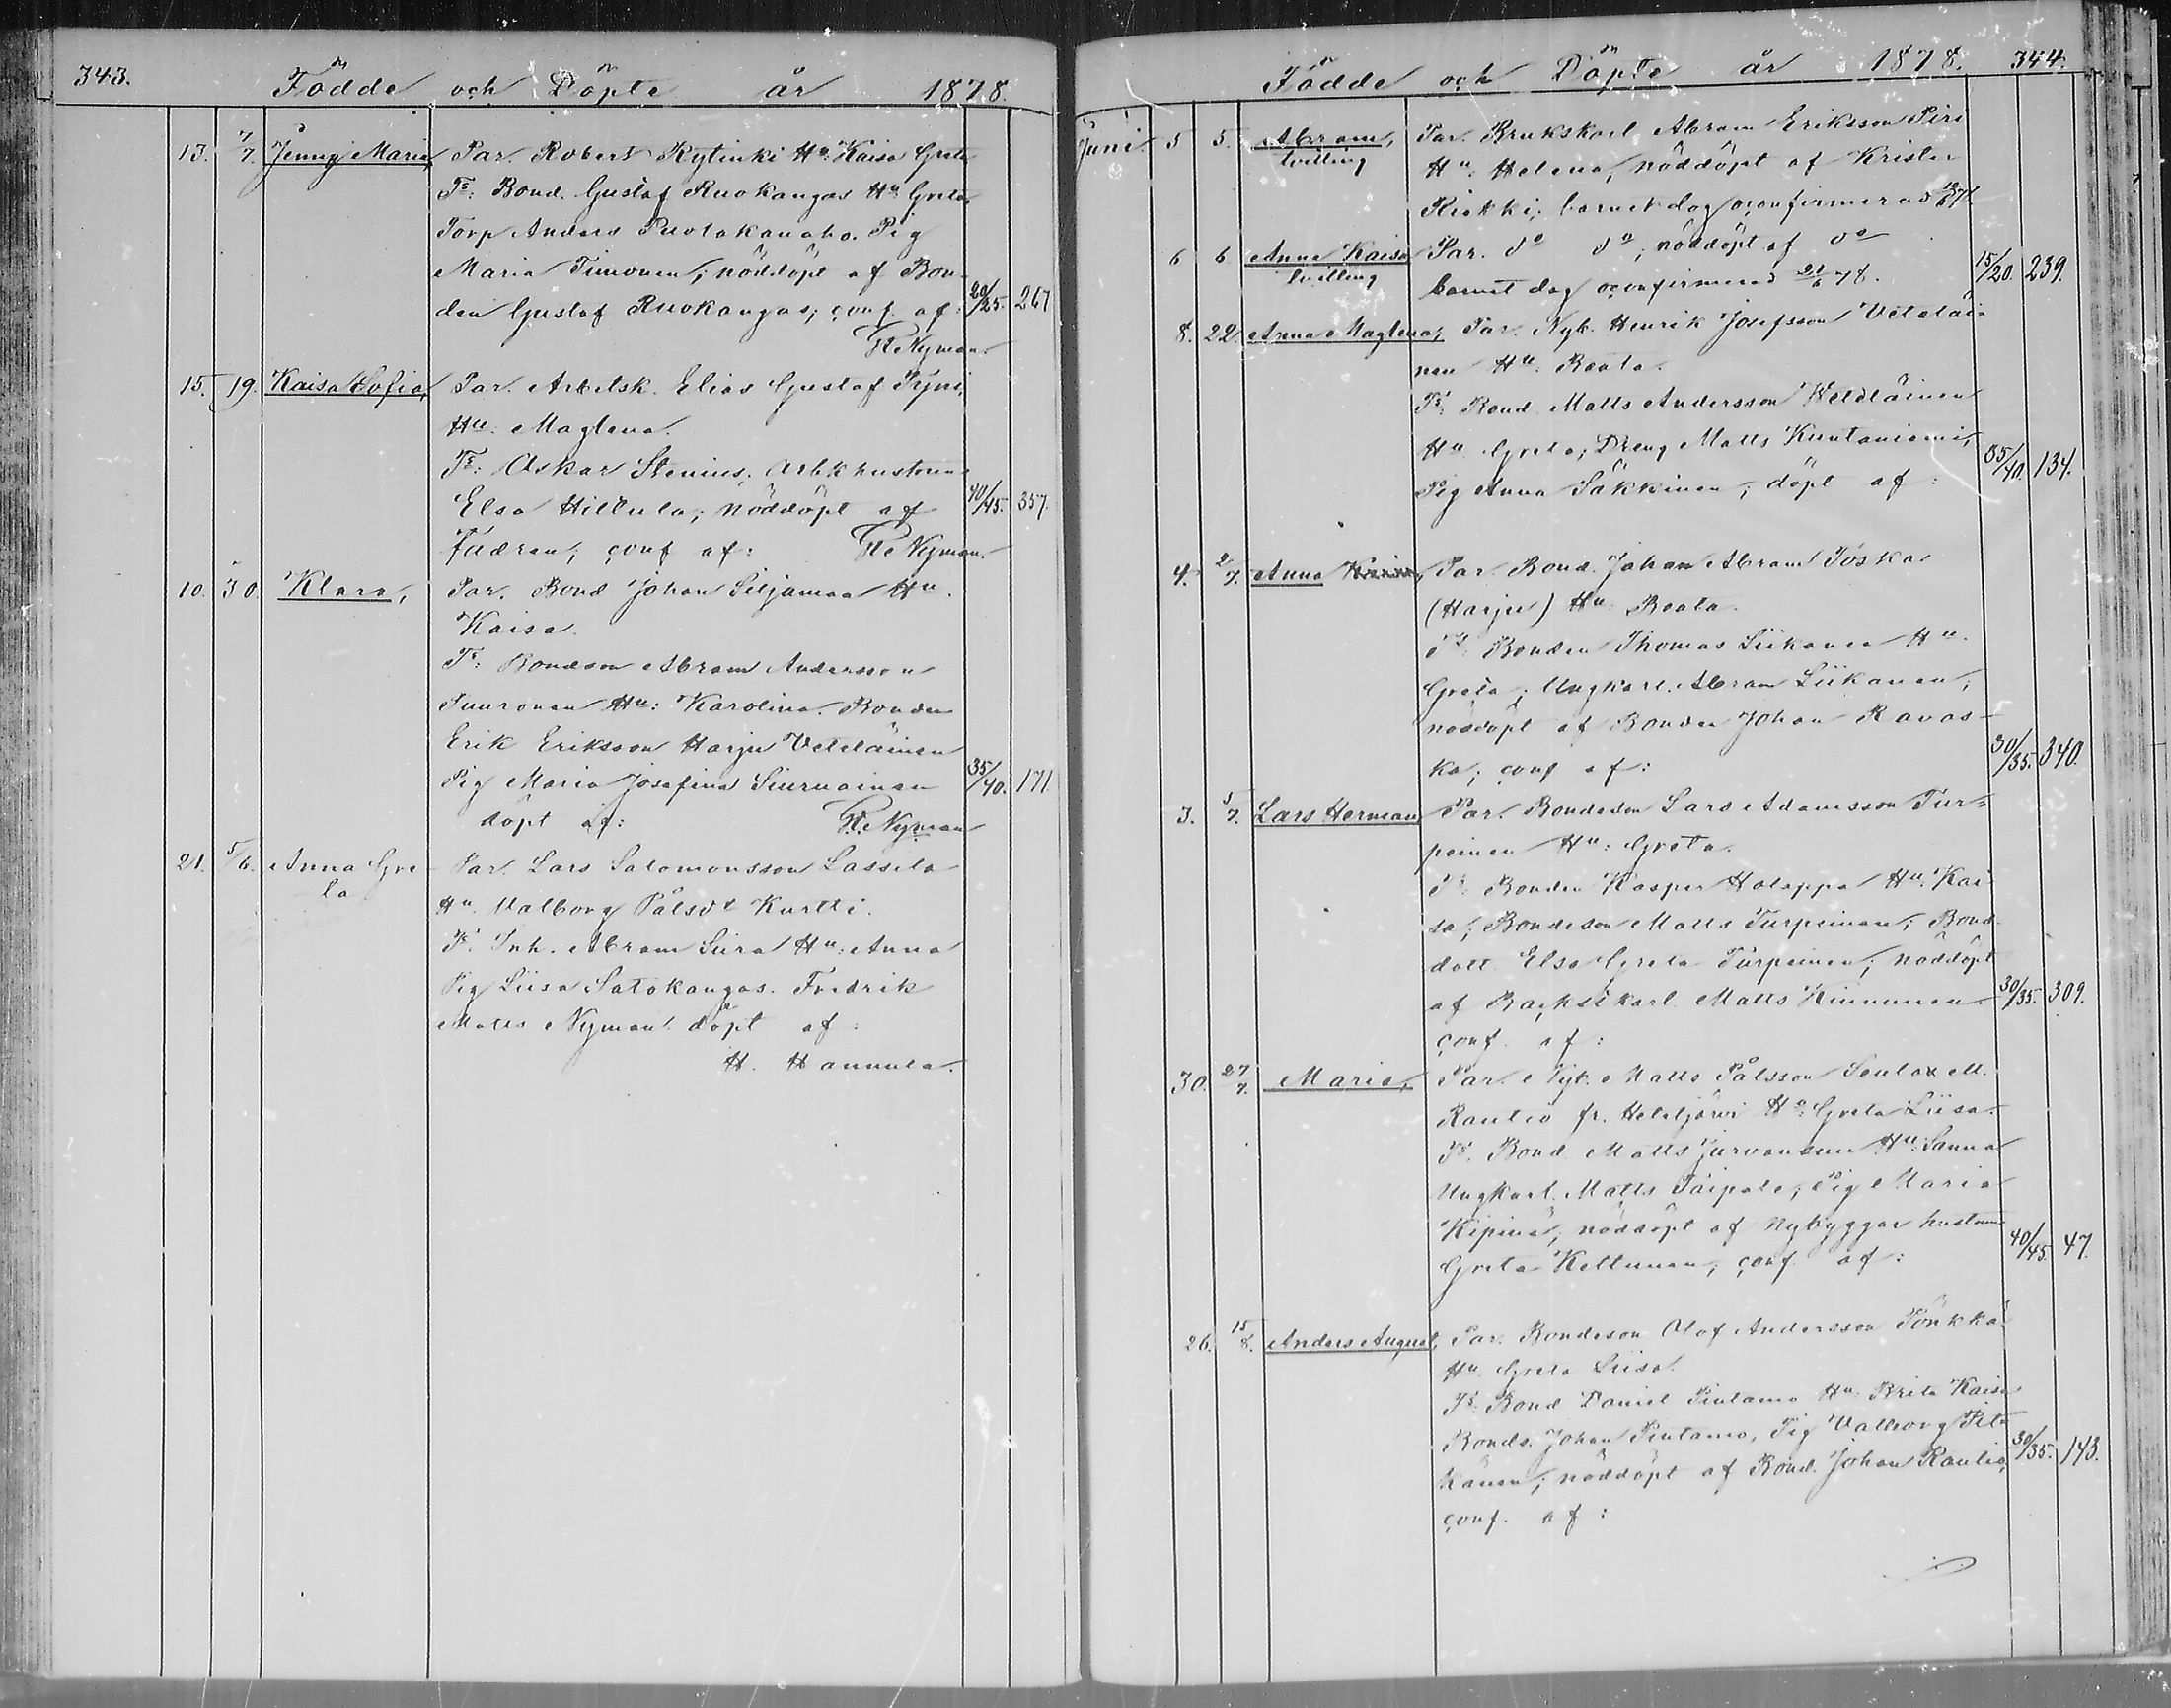 343.
Födde och Döpte år 1878.
13. 7/7. Jenny Maria, Par. Robert Kytinki Hu. Kaisa Greta
Ts: Bond. Gustaf Ruokangas Hu Greta
Torp Anders Puotakanaho. Pig
Maria Timonen; nöddöpt af Bon-
den Gustaf Ruokangas; conf af: 20/25. 267
Nyman.
15. 19. Kaisa Sofia, Par. Arbetsk. Elias Gustaf
Hu: Maglena.
Ts: Oskar Stenius, Arbkhustrun
Elsa Hillula; nöddöpt af 40/45. 357.
fadren; conf af: Nyman.
10. 30. Klara, Par. Bond Johan Siljamaa Hu.
Kaisa.
Ts: Bondson Abram Andersson
Hu: Karolina. Bonden
Erik Eriksson Harju Veteläinen
Pig Maria Josefina Siurnainen 35/40. 171.
döpt af: Nyman
21. 5/6. Anna Gre- Par. Lars Salomonsson Lassila
ta Hu. Valborg Pålsdt Kurtti.
Ts. Inh. Abram Siira Hu: Anna
Pig Liisa Satokangas. Fredrik
Matts Nyman. döpt af:
H. Hannula.
344.
Födde och Döpte år 1878.
Juni. 5 5. Abram, Par. Brukskarl Abram Eriksson Piri
tvilling Hu: Helena, nöddöpt af Krister
barnet dog oconfirmerad
6 6 Anna Kaisa Par. do do; nöddöpt af do
tvilling barnet dog oconfirmerad 21/6 78. 15/20. 239.
8. 22. Anna Maglena, Par. Nyb. Henrik Josefsson Veteläi-
nen Hu. Beata.
Ts: Bond. Matts Andersson Weteläinen
Hu Greta; Dreng Matts Kuntaniemi,
Pig Anna Säkkinen; döpt af: 35/40. 134.
4. 2/7. Anna Par. Bond. Johan Abram Poska
(Harju) Hu: Beata.
Ts: Bonden Thomas Liikanen Hu.
Greta; Ungkarl. Abram Liikanen;
nöddöpt af Bonden Johan Ravas-
ka; conf af: 30/35. 340.
3. 5/7. Lars Herman, Par. Bondeson Lars Adamsson Tur-
peinen Hu: Greta.
Ts: Bonden Kasper Holappa Hu. Kai-
sa; Bondeson Matts Turpeinen; Bond-
dott. Elsa Greta Turpeinen; nöddöpt
af Backstkarl Matts Kinnunen 30/35. 309.
conf. af:
30. 27/7. Maria, Par. Nyb. Matts Pålsson M.
Rautio fr. Hu: Greta Liisa.
Ts. Bond Matts Jurvansuu Hu: Sanna
Ungkarl. Matts Taipale; Pig Maria
Kipinä; nöddöpt af Nybyggar hustrun
Greta Keltunen; conf af: 40/45. 47.
26. 15/8. Anders August, Par. Bondeson Olof Andersson Pönkkä
Hu. Greta Liisa.
Ts: Bond Daniel Pintamo Hu: Brita Kaisa
Bonds. Johan Pintamo, Pig Valborg Pit-
känen; nöddöpt af Bond. Johan Rautio, 30/35. 143.
conf. af: